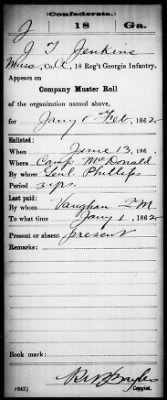 Confederate.
J 18 Ga.
J T Jenkins
Co. C, 18 Reg't Georgia Infantry,
Appears on
Company Muster Roll
of the organization named above,
for Jany & Feb, 1862
Enlisted:
When June 13, 186 .
Where Camp McDonald
By whom Genl. Phillips
Period 3 yrs.
Last paid:
By whom Vaughan
To what time Jany 1, 1862
Present or absent present
Remarks:
Book mark:
(642) Copyist.